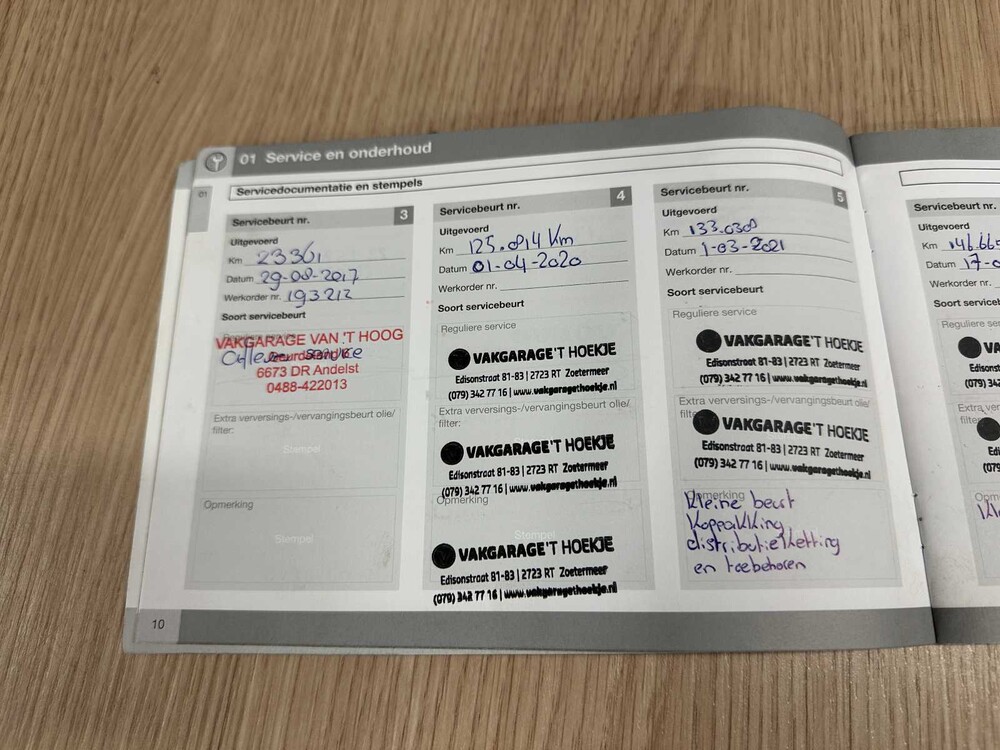 01 Service en onderhoud
01
Servicedocumentatie en stempels
Servicebeurt nr. 3
Uitgevoerd
Km
Datum 29-08-2017
Werkorder nr. 193212
Soort servicebeurt
VAKGARAGE VAN 'T HOOG
6673 DR Andelst
0488-422013
Extra verversings-/vervangingsbeurt olie/
filter:
Stempel
Opmerking
Stempel
10
Servicebeurt nr. 4
Uitgevoerd
Km 125.814 Km
Datum 01-04-2020
Werkorder nr.
Soort servicebeurt
Reguliere service
VAKGARAGE'T HOEKJE
Edisonstraat 81-83 | 2723 RT Zoetermeer
(079) 342 77 16 | www.vakgaragethoekje.nl
Extra verversings-/vervangingsbeurt olie/
filter:
VAKGARAGE'T HOEKJE
Edisonstraat 81-83 | 2723 RT Zoetermeer
(079) 342 77 16 | www.vakgaragethoekje.nl
Opmerking
Stempel
VAKGARAGE'T HOEKJE
Edisonstraat 81-83 | 2723 RT Zoetermeer
(079) 342 77 16 | www.vakgaragethoekje.nl
Servicebeurt nr. 5
Uitgevoerd
Km 133.0308
Datum 1-03-2021
Werkorder nr.
Soort servicebeurt
Reguliere service
VAKGARAGE'T HOEKJE
Edisonstraat 81-83 | 2723 RT Zoetermeer
(079) 342 77 16 | www.vakgaragethoekje.nl
Extra verversings-/vervangingsbeurt olie/
filte
VAKGARAGE'T HOEKJE
Edisonstraat 81-83 | 2723 RT Zoetermeer
(079) 342 77 16 | www.vakgaragethoekje.nl
Opmerking
Kleine beurt
distributieketting
en toebehoren
Servicebeurt nr.
Uitgevoerd
Km 146.665
Datum 17-0
Werkorder nr.
Soort servicebeurt
Reguliere service
VAK
Edison
(079) 34
Extra ve
filter:
V
Edi
(07
Opm
Kl